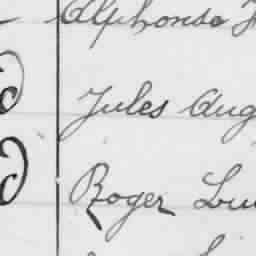 Alphonse
Jules Aug
Roger Lu